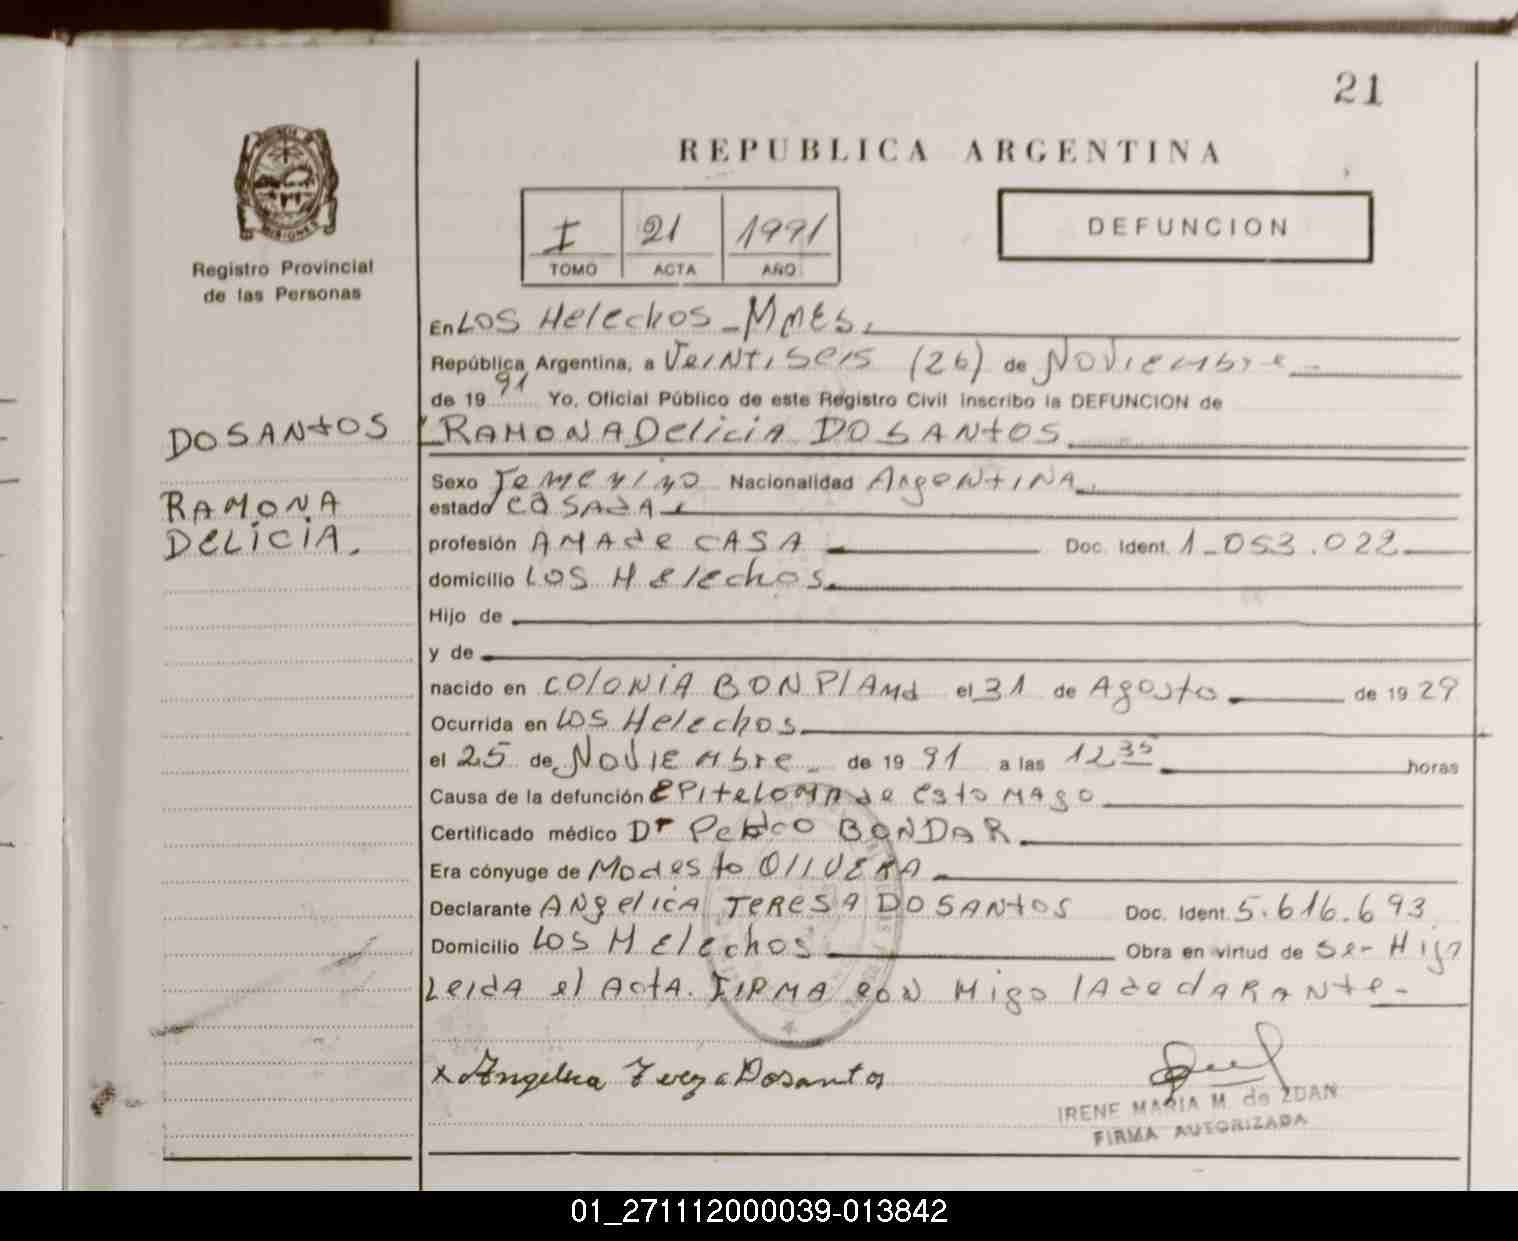 21
REPUBLICA ARGENTINA
MISIONES
Registro Provincial
de las Personas
I 21 1991
TOMO ACTA AÑO
DEFUNCION
En LOS Helechos - Mnes.
República Argentina, a VeINtiseis (26) de Noviembre
de 19 91 Yo, Oficial Público de este Registro Civil inscribo la DEFUNCION de
DOSANtOS
RAMONA
DELiCiA.
RAMONA Delicia DOSANtOS
Sexo Femenino Nacionalidad ArgeNtiNA
estado CASAdA
profesión AMA de CASA Doc. Ident. 1-053.022
domicilio LOS Helechos
Hijo de
y de
nacido en COloNiA BONPlANd el 31 de Agosto de 19 29
Ocurrida en LOS Helechos
el 25 de Noviembre de 19 91 a las 12 35 horas
Causa de la defunción EPiteloMA de estoMAgo
Certificado médico Dr Pedro BONDAR
Era cónyuge de Modesto OliVERA
Declarante ANgeliCA TERESA DOSANtOS Doc. Ident. 5.616.693
Domicilio LOS Helechos Obra en virtud de Ser Hija
LeidA el ActA. FIRMA CON Migo lA declARANte-
x Angelica Tereza Dosantos
IRENE MARIA M. de ZDAN
FIRMA AUTORIZADA
01_271112000039-013842